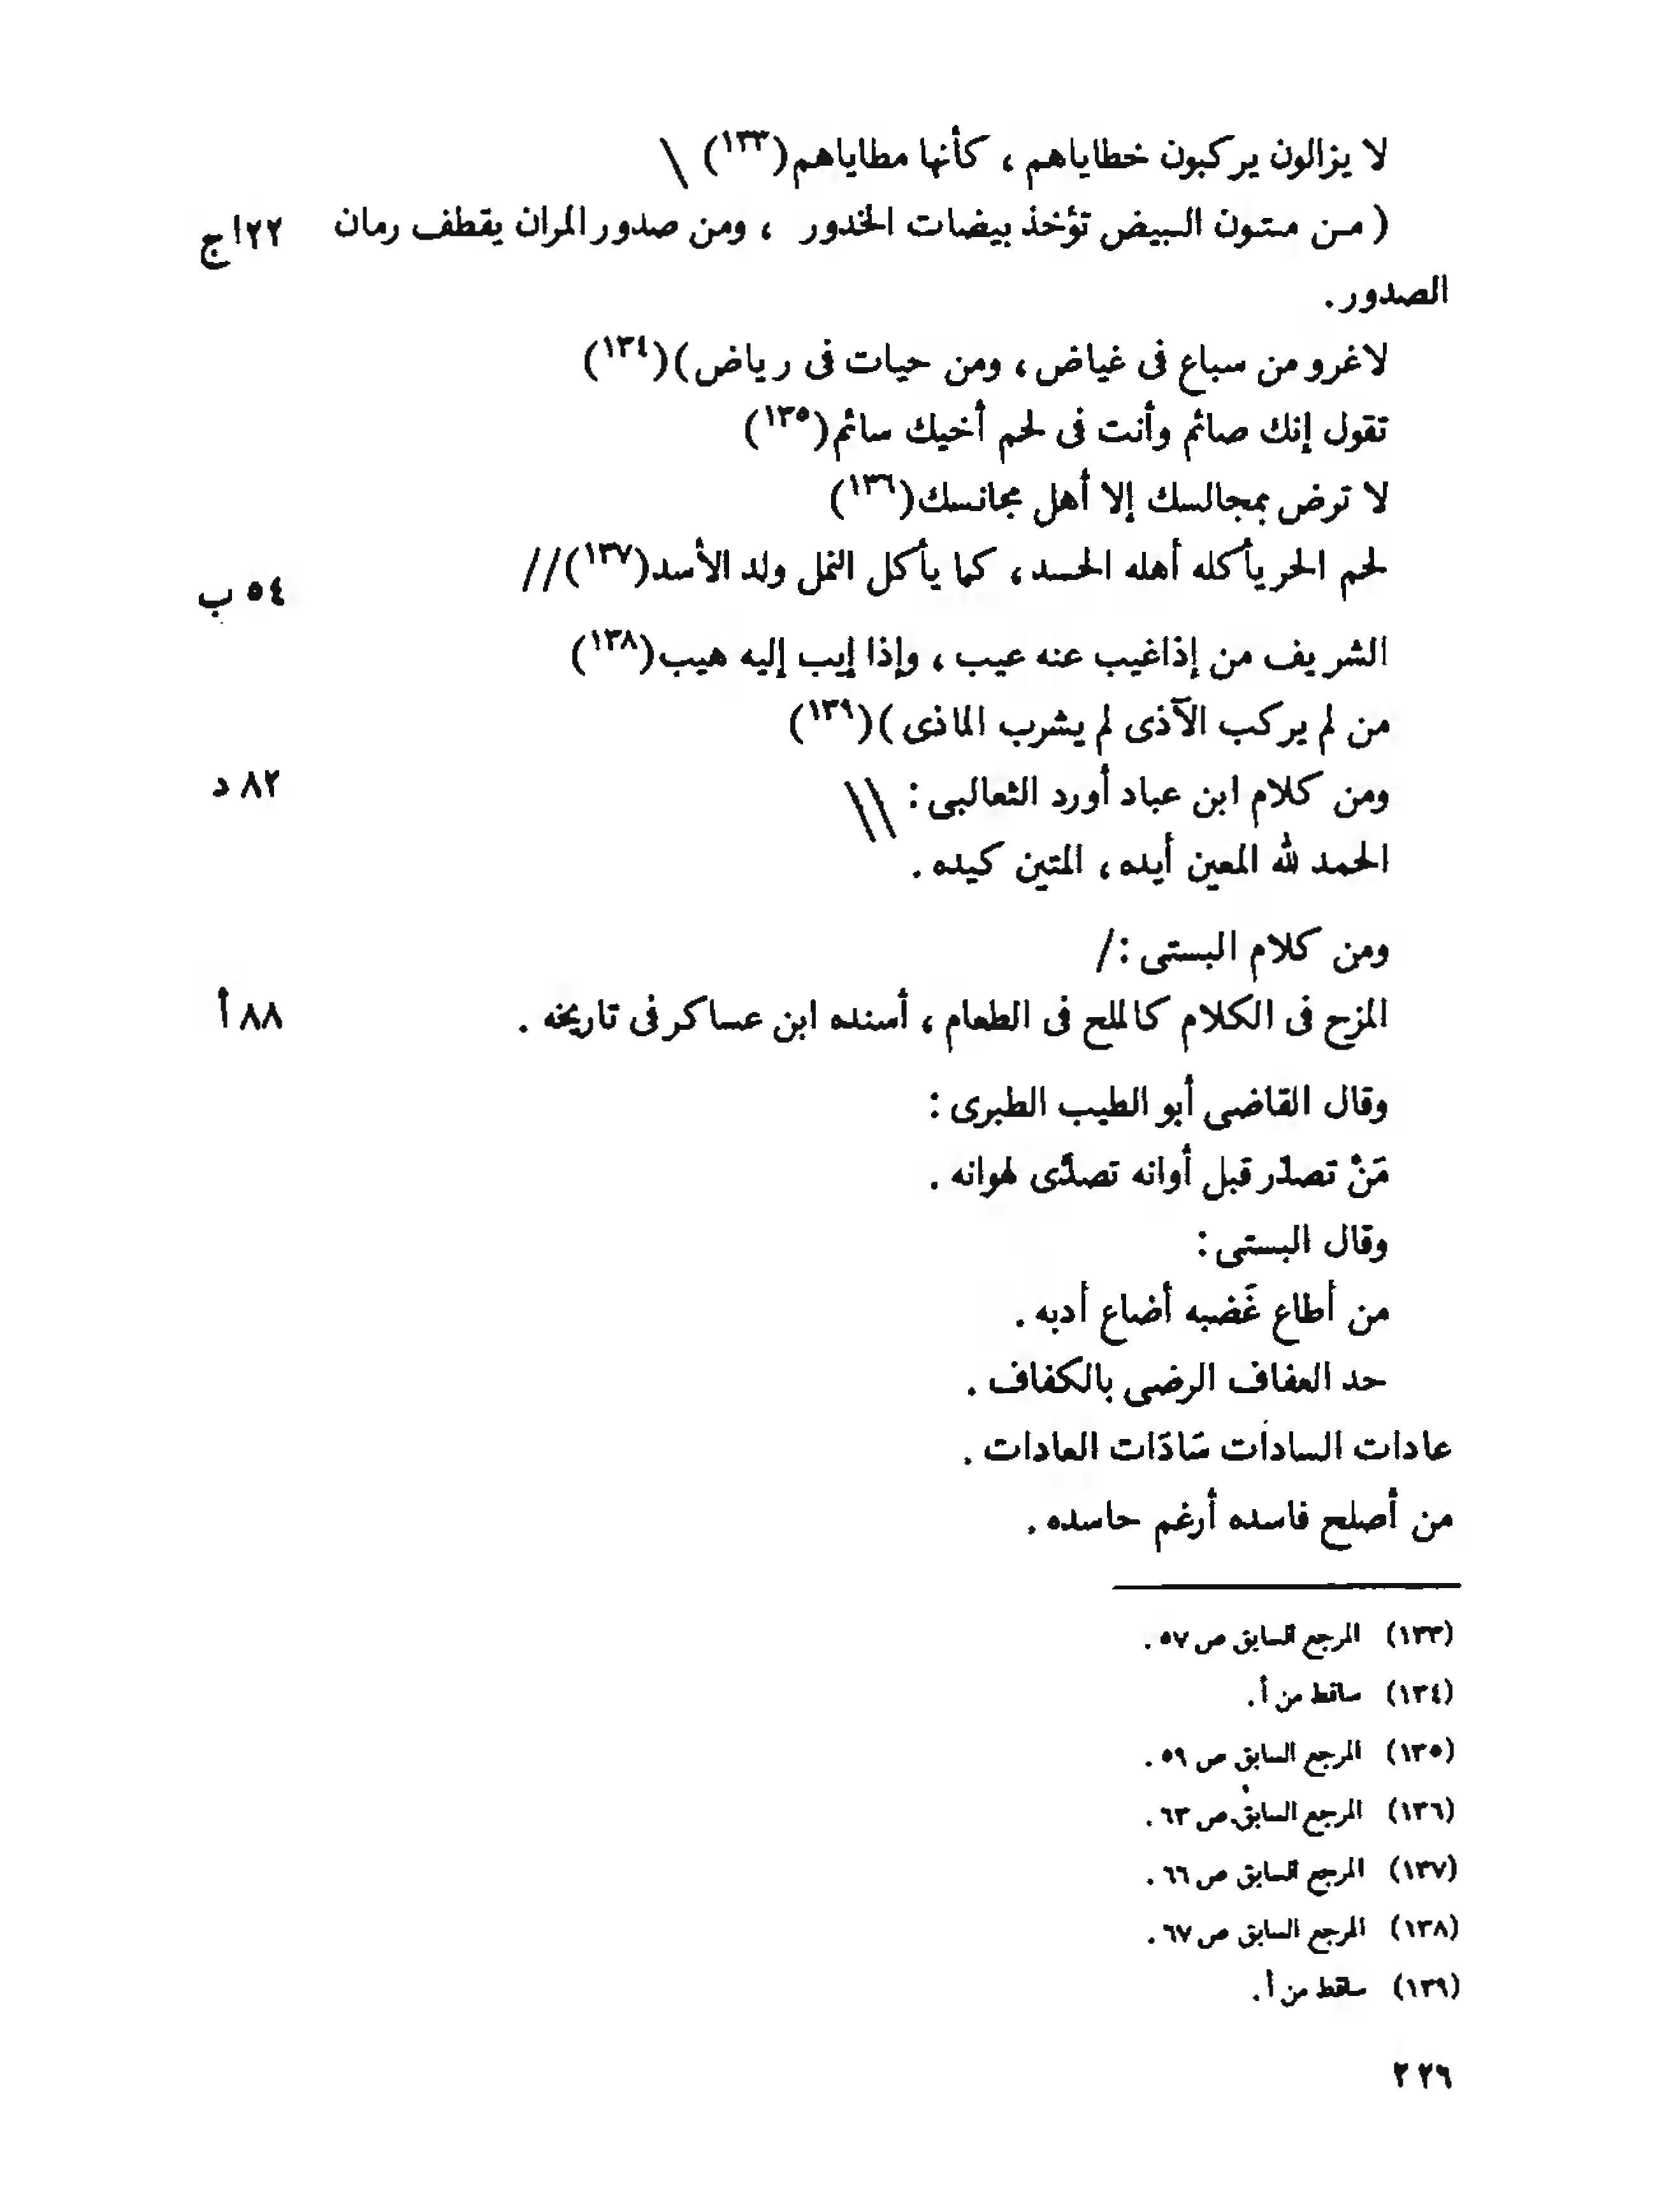 لا يزالون يركبون خطاياهم ، كأنها مطاياهم(١٣٣) \
( من متون البيض تؤخذ بيضات الخدور ، ومن صدور المران يقطف رمان ٢٢اج
الصدور .
لاغرو من سباع فى غياض ، ومن حيات فى رياض )(١٣٤)
تقول إنك صائم وأنت فى لحم أخيك سائم(١٣٥)
لا ترض بمجالسك إلا أهل مجانسك(١٣٦)
لحم الحر يأكله أهله الحسد ، كما يأكل النمل ولد الأسد(١٣٧)//
٥٤ ب
الشريف من إذاغيب عنه عيب ، وإذا إيب إليه هيب(١٣٨)
من لم يركب الآذى لم يشرب الماذى )(١٣٩)
ومن كلام ابن عباد أورد الثعالبى : \\ ٨٢ د
الحمد لله المعين أيده ، المتين كيده .
ومن كلام البستى :/
المزح فى الكلام كالملح فى الطعام ، أسنده ابن عساكر فى تاريخه . ٨٨ أ
وقال القاضى أبو الطيب الطبرى :
مَنْ تصدّر قبل أوانه تصدَّى لهوانه .
وقال البستى :
من أطاع غَضبه أضاع أدبه .
حد العفاف الرضى بالكفاف .
عادات السادات سَادَات العادات .
من أصلح فاسده أرغم حاسده .
(١٣٣) المرجع السابق ص ٥٧ .
(١٣٤) ساقط من أ .
(١٣٥) المرجع السابق ص ٥٩ .
(١٣٦) المرجع السابق ص ٦٣ .
(١٣٧) المرجع السابق ص ٦٦ .
(١٣٨) المرجع السابق ص ٦٧ .
(١٣٩) ساقط من أ .
٢٢٦